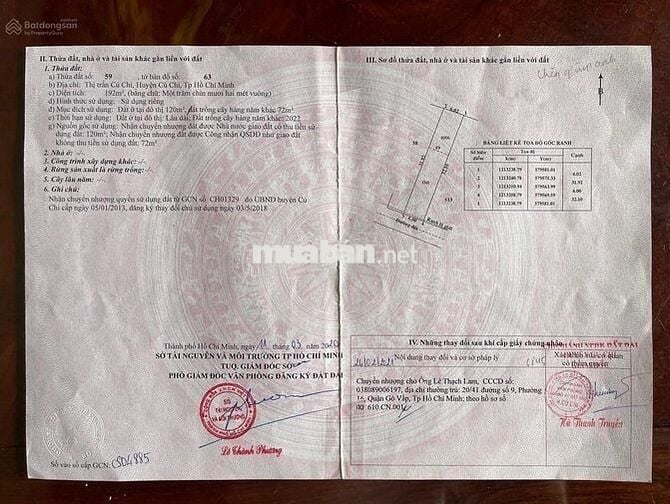 Batdongsan
by PropertyGuru
II. Thửa đất, nhà ở và tài sản khác gắn liền với đất
1. Thửa đất:
a) Thửa đất số: 59 , tờ bản đồ số: 63
b) Địa chỉ: Thị trấn Củ Chi, Huyện Củ Chi, Tp Hồ Chí Minh
c) Diện tích: 192m², (bằng chữ: Một trăm chín mươi hai mét vuông)
d) Hình thức sử dụng: Sử dụng riêng
đ) Mục đích sử dụng: Đất ở tại đô thị 120m², đất trồng cây hàng năm khác 72m²
e) Thời hạn sử dụng: Đất ở tại đô thị: Lâu dài; Đất trồng cây hàng năm khác: 2022
g) Nguồn gốc sử dụng: Nhận chuyển nhượng đất được Nhà nước giao đất có thu tiền sử
dụng đất: 120m²; Nhận chuyển nhượng đất được Công nhận QSDĐ như giao đất
không thu tiền sử dụng đất: 72m²
2. Nhà ở: -/-
3. Công trình xây dựng khác: -/-
4. Rừng sản xuất là rừng trồng: -/-
5. Cây lâu năm: -/-
6. Ghi chú:
Nhận chuyển nhượng quyền sử dụng đất từ GCN số CH01329 do UBND huyện Củ
Chi cấp ngày 05/01/2013, đăng ký thay đổi chủ sử dụng ngày 03/5/2018
Thành phố Hồ Chí Minh, ngày 11 tháng 03 năm 2020
SỞ TÀI NGUYÊN VÀ MÔI TRƯỜNG TP HỒ CHÍ MINH
TUQ. GIÁM ĐỐC SỞ
PHÓ GIÁM ĐỐC VĂN PHÒNG ĐĂNG KÝ ĐẤT ĐAI
SỞ
TÀI NGUYÊN
VÀ MÔI TRƯỜNG
Lê Thành Phương
Số vào sổ cấp GCN: CS04885
III. Sơ đồ thửa đất, nhà ở và tài sản khác gắn liền với đất
B
6.02
58
59
513
6.00
BẢNG LIỆT KÊ TỌA ĐỘ GÓC RANH
Số hiệu điểm
Tọa độ
X(m)
Y(m)
Cạnh
6.02
31.92
6.00
32.10
muaban.net
IV. Những thay đổi sau khi cấp giấy chứng nhận
Nội dung thay đổi và cơ sở pháp lý
Xác nhận của cơ quan
có thẩm quyền
Chuyển nhượng cho Ông Lê Thạch Lam, CCCD số:
038089006197, địa chỉ thường trú: 20/41 đường số 9, Phường
16, Quận Gò Vấp, Tp Hồ Chí Minh; theo hồ sơ số
610.CN.001
Hà Thanh Truyền